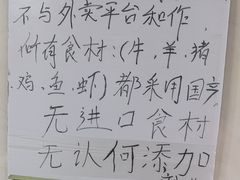 不与外卖平台和作
所有食材:(牛,羊,猪
鸡、鱼虾)都采用国产
无进口食材
无认何添加